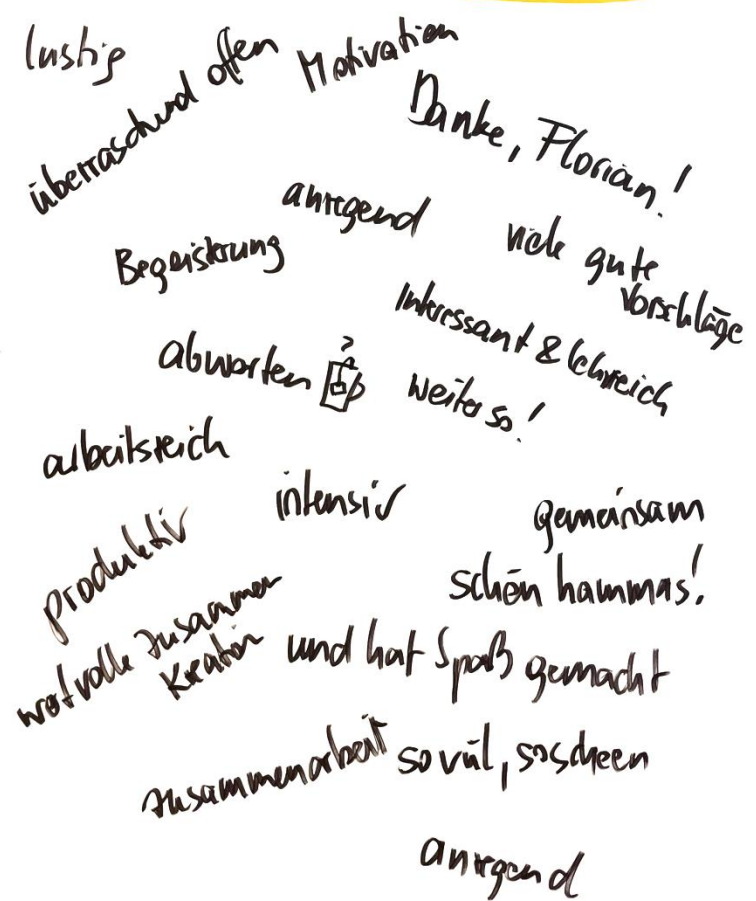 lustig
überraschend offen
Motivation
Danke, Florian!
anregend
viele gute
Vorschläge
Begeisterung
Interessant & lehrreich
abwarten
?
weiter so!
arbeitsreich
intensiv
gemeinsam
produktiv
schön hammas!
wertvolle Zusammen
Kreation
und hat Spaß gemacht
Zusammenarbeit
so vül, so scheen
anregend